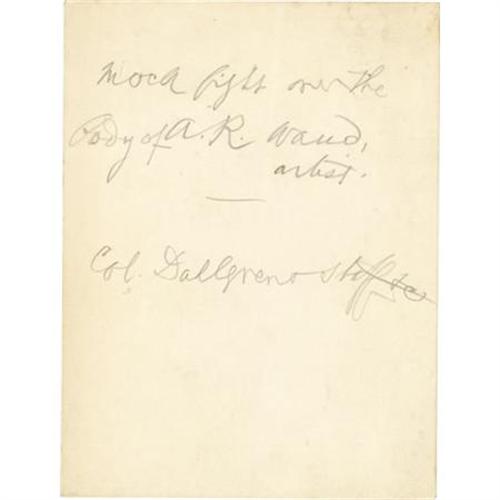 Mock fight over the
Body of A. R. Waud,
artist.
Col. Dallgrens staff &c